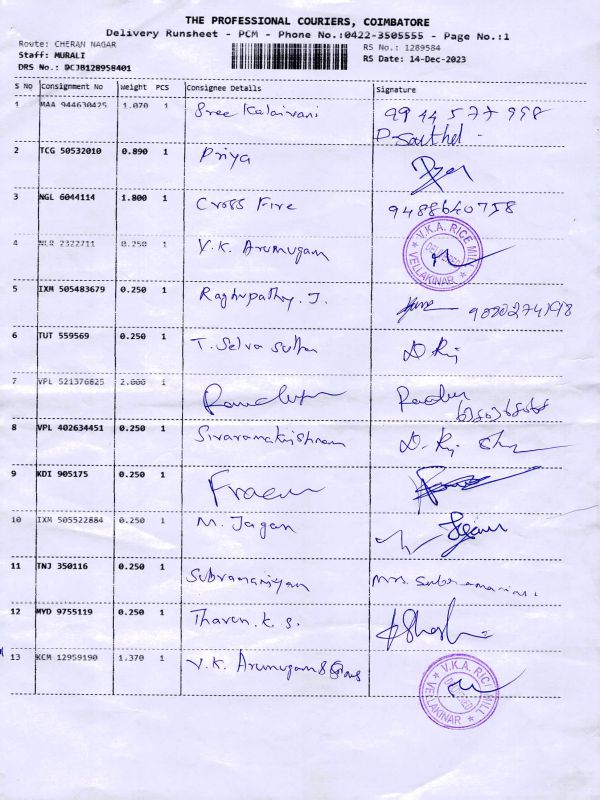 THE PROFESSIONAL COURIERS, COIMBATORE
Delivery Runsheet - PCM - Phone No.:0422-3505555 - Page No.:1
Route: CHERAN NAGAR RS No.: 1289584
Staff: MURALI RS Date: 14-Dec-2023
DRS No.: DCJB128958401
S NO Consignment No Weight PCS Consignee Details Signature
1 MAA 944630425 1.070 1 Sree Kalaivani 9944577998
P. Sakthel -
2 TCG 50532010 0.890 1 Priya
3 NGL 6044114 1.800 1 Cross Fire 9488640758
4 NLR 2322711 0.250 1 V.K. Arumugam V.K.A. RICE MILL VELLAKINAR
5 IXM 505483679 0.250 1 Raghupathy. J.
6 TUT 559569 0.250 1 T. Selva D. Raj
7 VPL 521376825 2.000 1
8 VPL 402634451 0.250 1 Sivaramakrishnan D. Raj
9 KDI 905175 0.250 1
10 IXM 505522884 0.250 1 M. Jagan Jagan
11 TNJ 350116 0.250 1 Subramaniyan Mrs. Subramanian.
12 MYD 9755119 0.250 1 Tharen. K. S.
13 KCM 12959190 1.370 1 V.K. Arumugam & Sons V.K.A. RICE MILL VELLAKINAR